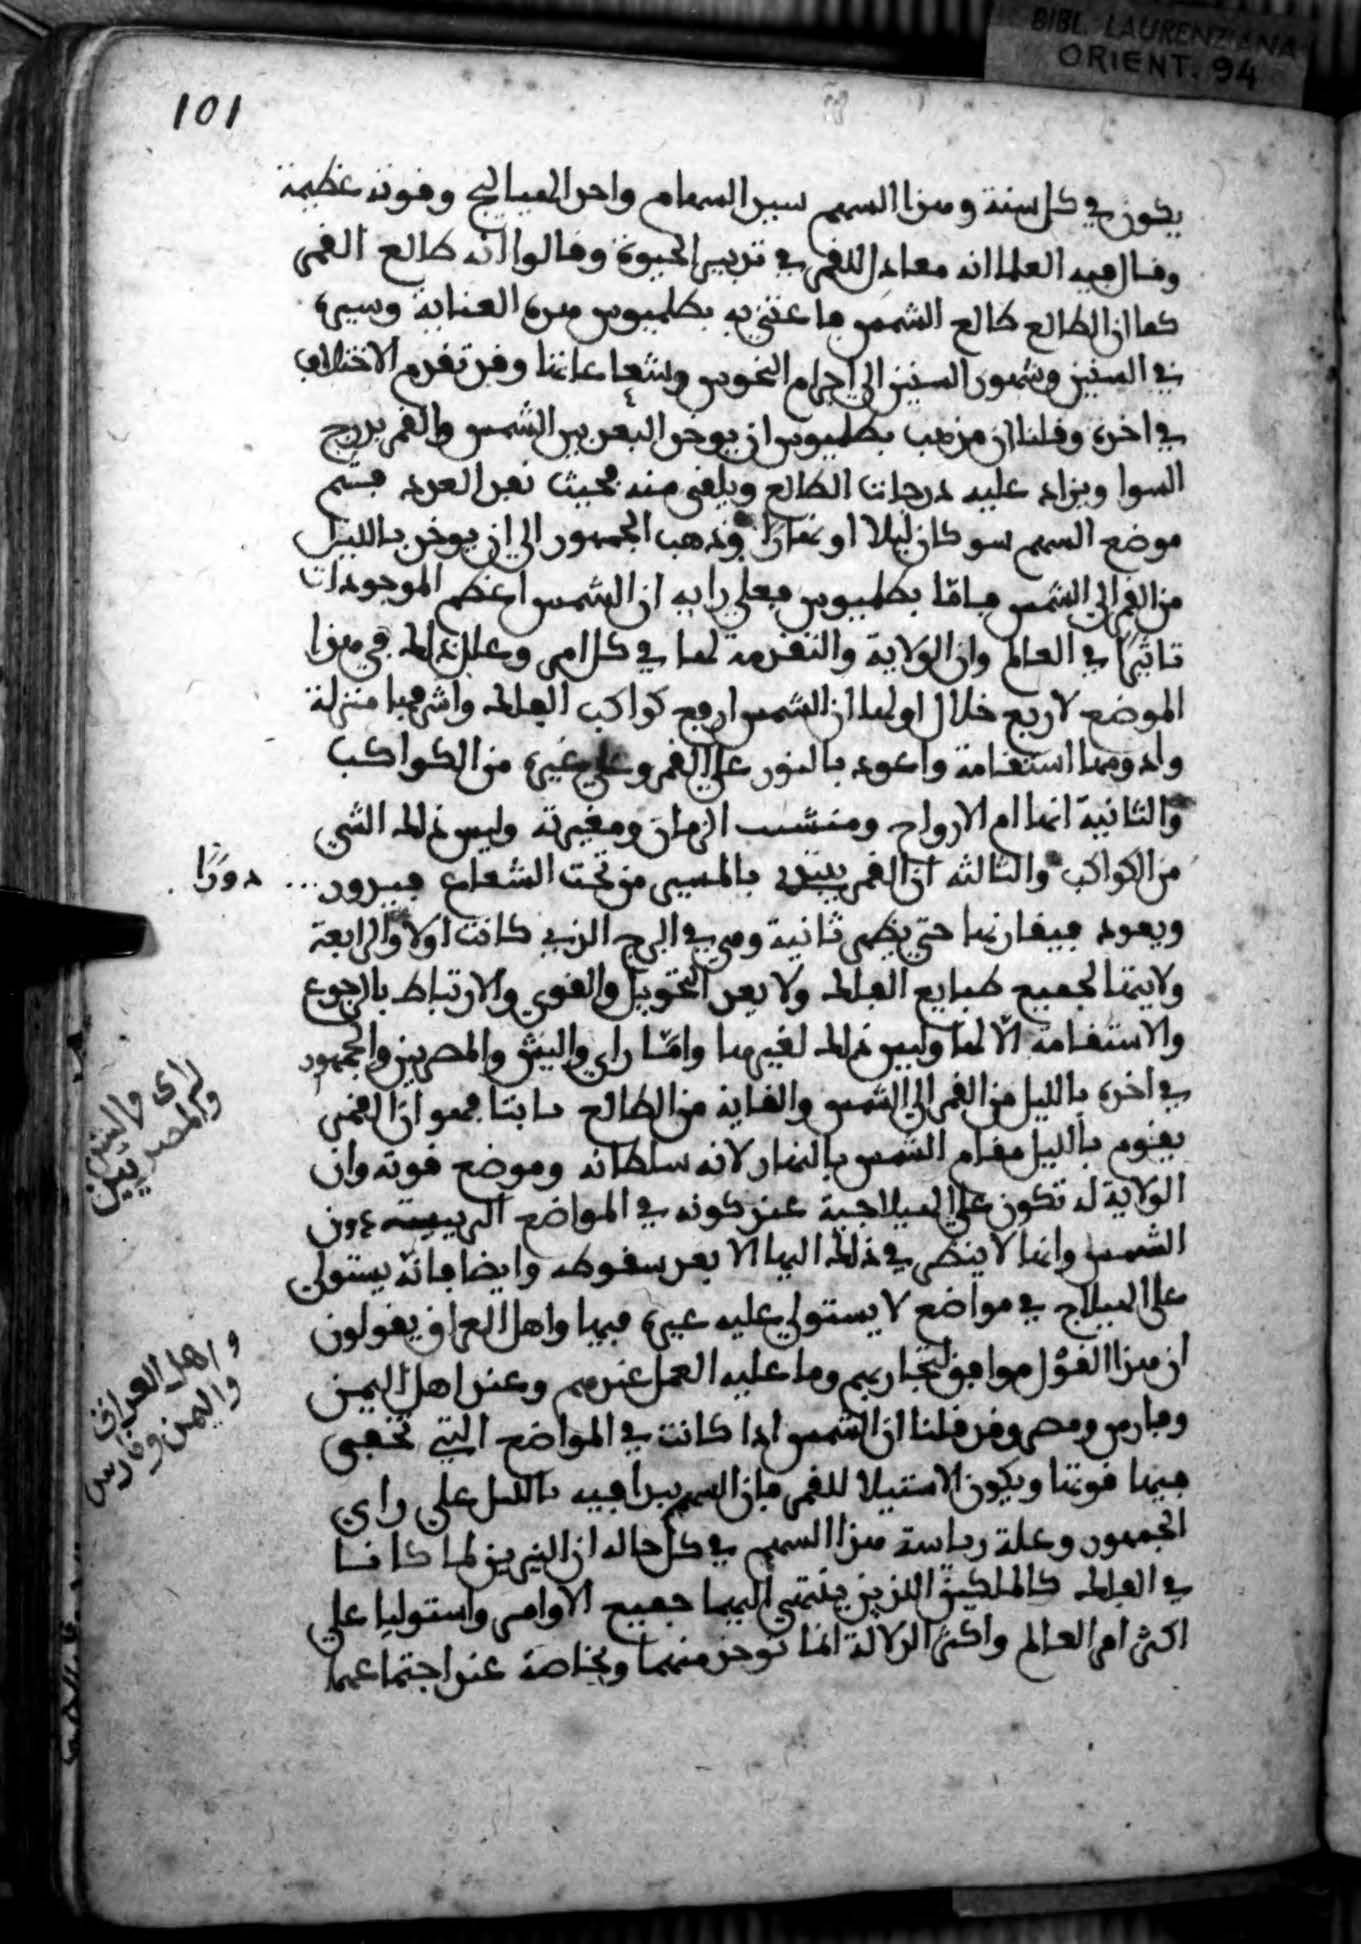 BIBL. LAURENZIANA
ORIENT. 94
101
يكون في كل سنة وهذا السهم سيد السهام واحد الهيالج وقوته عظيمة
وقال فيه العلما انه معادل للقمر في تدبير الحيوة وقالوا انه طالع القمر
كما ان الطالع طالع الشمس ما عتني به بطلميوس هذه العناية وسيره
في السنين وشهور السنين الى اجرام النحوس وشعاعاتها وقد تقدم الاختلاف
في اخذه وقلنا ان مذهب بطلميوس ان يوخذ البعد بين الشمس والقمر بدرج
السوا ويزاد عليه درجات الطالع ويلقى منه فحيث نفد العدد فثم
موضع السهم سو كان ليلا او نهارًا وذهب الجمهور الى ان يوخذ بالليل
من القمر الى الشمس فامّا بطلميوس فعلى رايه ان الشمس اعظم الموجودات
تاثيرًا في العالم وان الولاية والتقدمة لها في كل امر وعلل ذلك في هذا
الموضع لاربع خلال اولها ان الشمس ارفع كواكب الفلك واشرفها منزلة
وادومها استقامة واعود بالنور على القمر وعلى غيره من الكواكب
والثانية انها ام الارواح ومنشيت الزمان ومغيرته وليس ذلك الشي
من الكواكب والثالثه ان القمر يبتدي بالمسير من تحت الشعاع فيبرور ... دورًا
ويعود فيقارنها حتى يظهر ثانية وهي في البرج الذي كانت اولا والرابعة
ولايتها لجميع طبايع الفلك ولا يعد التحويل والقوي والارتباط بالرجوع
والاستقامة الّا لها وليس ذلك لغيرها وامّا راي واليش والمصريين والجمهور
في اخذه بالليل من القمر الى الشمس والغاية من الطالع ثابتا فهو ان القمر
يقوم بالليل مقام الشمس بالنهار لانه سلطانه وموضع قوته وان
الولاية له تكون على الهيلاجية عند كونه في المواضع الرييسة دون
الشمس وانها لا ينظر في ذلك اليها الا بعد سقوطه وايضا فانّه يستولي
على الهيلاج في مواضع لا يستولي عليه غيره فيها واهل العراق يقولون
ان هذا القوْل موافق لتجاربهم وما عليه العمل عندهم وعند اهل اليمن
وفارس ومصر وقد قلنا ان الشمس اذا كانت في المواضع التي تخفى
فيها قوتها ويكون الاستيلا للقمر فان السهم يبدا فيه بالليل على راي
الجمهور وعلة رياسة هذا السهم في كل حاله ان النيرين لما كانا
في الفلك كالملكين اللذين ينتهي اليهما جميع الاوامر واستوليا على
اكثر امر العالم واكثر الدلالة انما توخذ منهما وبخاصة عند اجتماعهما
راى واليش
والمصريين
واهل العراق
واليمن وفارس